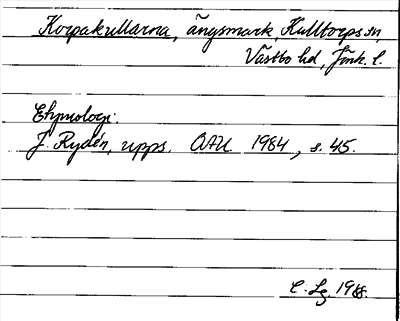 Korpakullarna, ängsmark, Kulltorps sn,
Västbo hd, Jönk. l.
Etymologi.
J. Rydén, upps. OAU 1984, s. 45.
C. Lg. 1988.